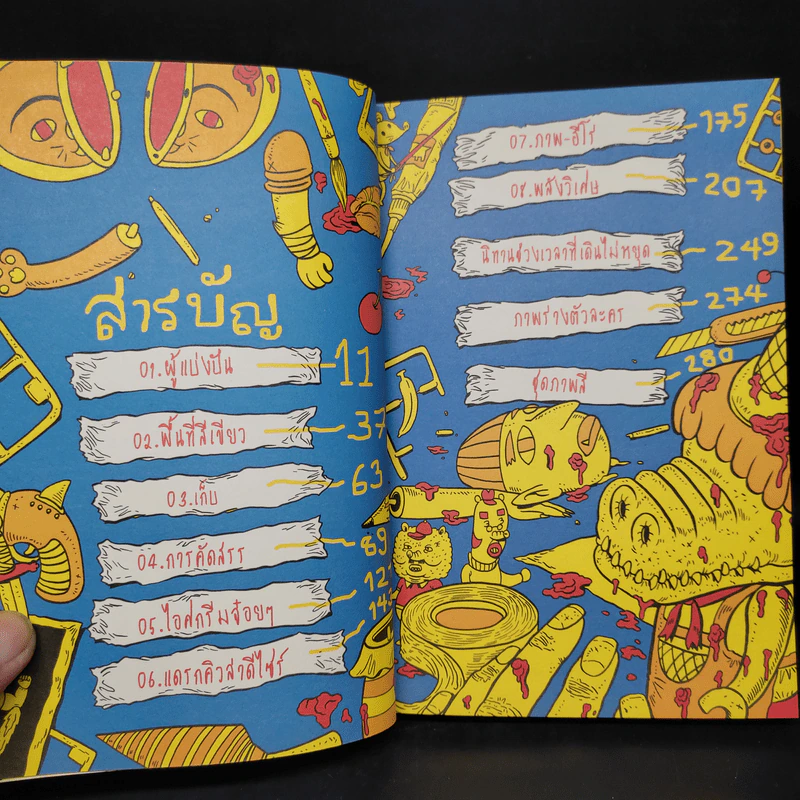 สารบัญ
01.ผู้แบ่งปัน 11
02.พื้นที่สีเขียว 37
03.เก็บ 63
04.การคัดสรร 89
05.ไอศกรีมจ๋อยๆ
06.แดรกคิวสาดีไซร์
07.ภาพ-ฮีโร่ 175
08.พลังวิเศษ 207
นิทานช่วงเวลาที่เดินไม่หยุด 249
ภาพร่างตัวละคร 274
ชุดภาพสี 280